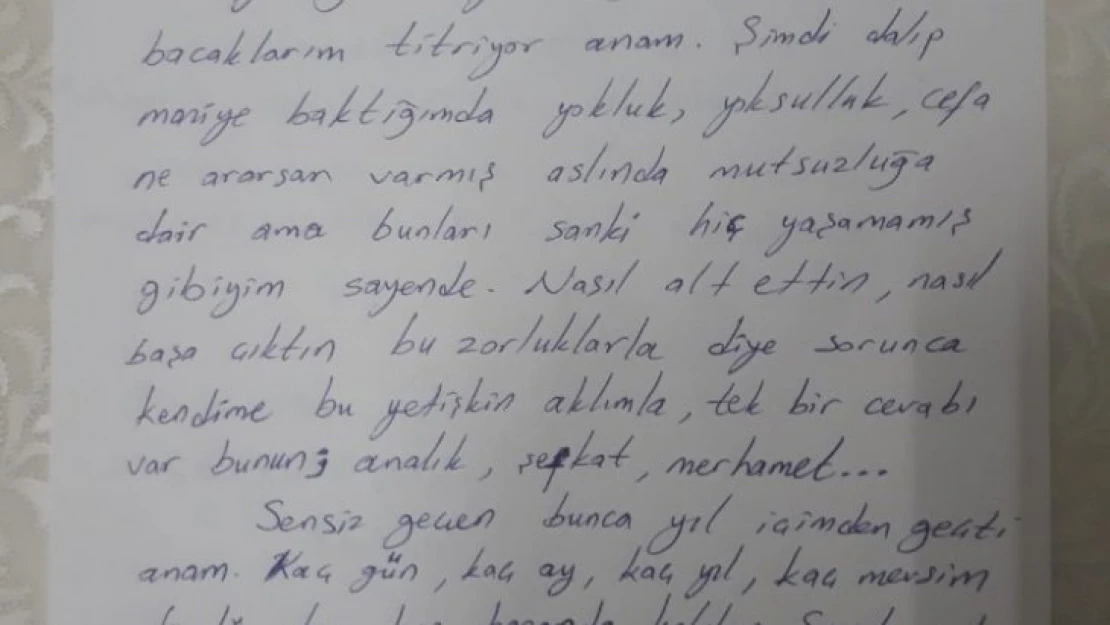 bacaklarım titriyor anam. Şimdi dalıp
maziye baktığımda yokluk, yoksulluk, cefa
ne ararsan varmış aslında mutsuzluğa
dair ama bunları sanki hiç yaşamamış
gibiyim sayende. Nasıl alt ettin, nasıl
başa çıktın bu zorluklarla diye sorunca
kendime bu yetişkin aklımla, tek bir cevabı
var bunun; analık, şefkat, merhamet...
Sensiz geçen bunca yıl içimden geçti
anam. Kaç gün, kaç ay, kaç yıl, kaç mevsim